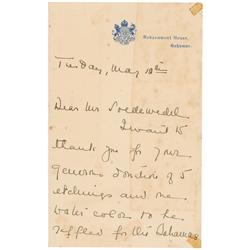 Government House,
Bahamas.
Tuesday, May 12th
Dear Mr
I want to
thank you for your
generous donation of 5
etchings and one
water color to be
raffled for the Bahamas